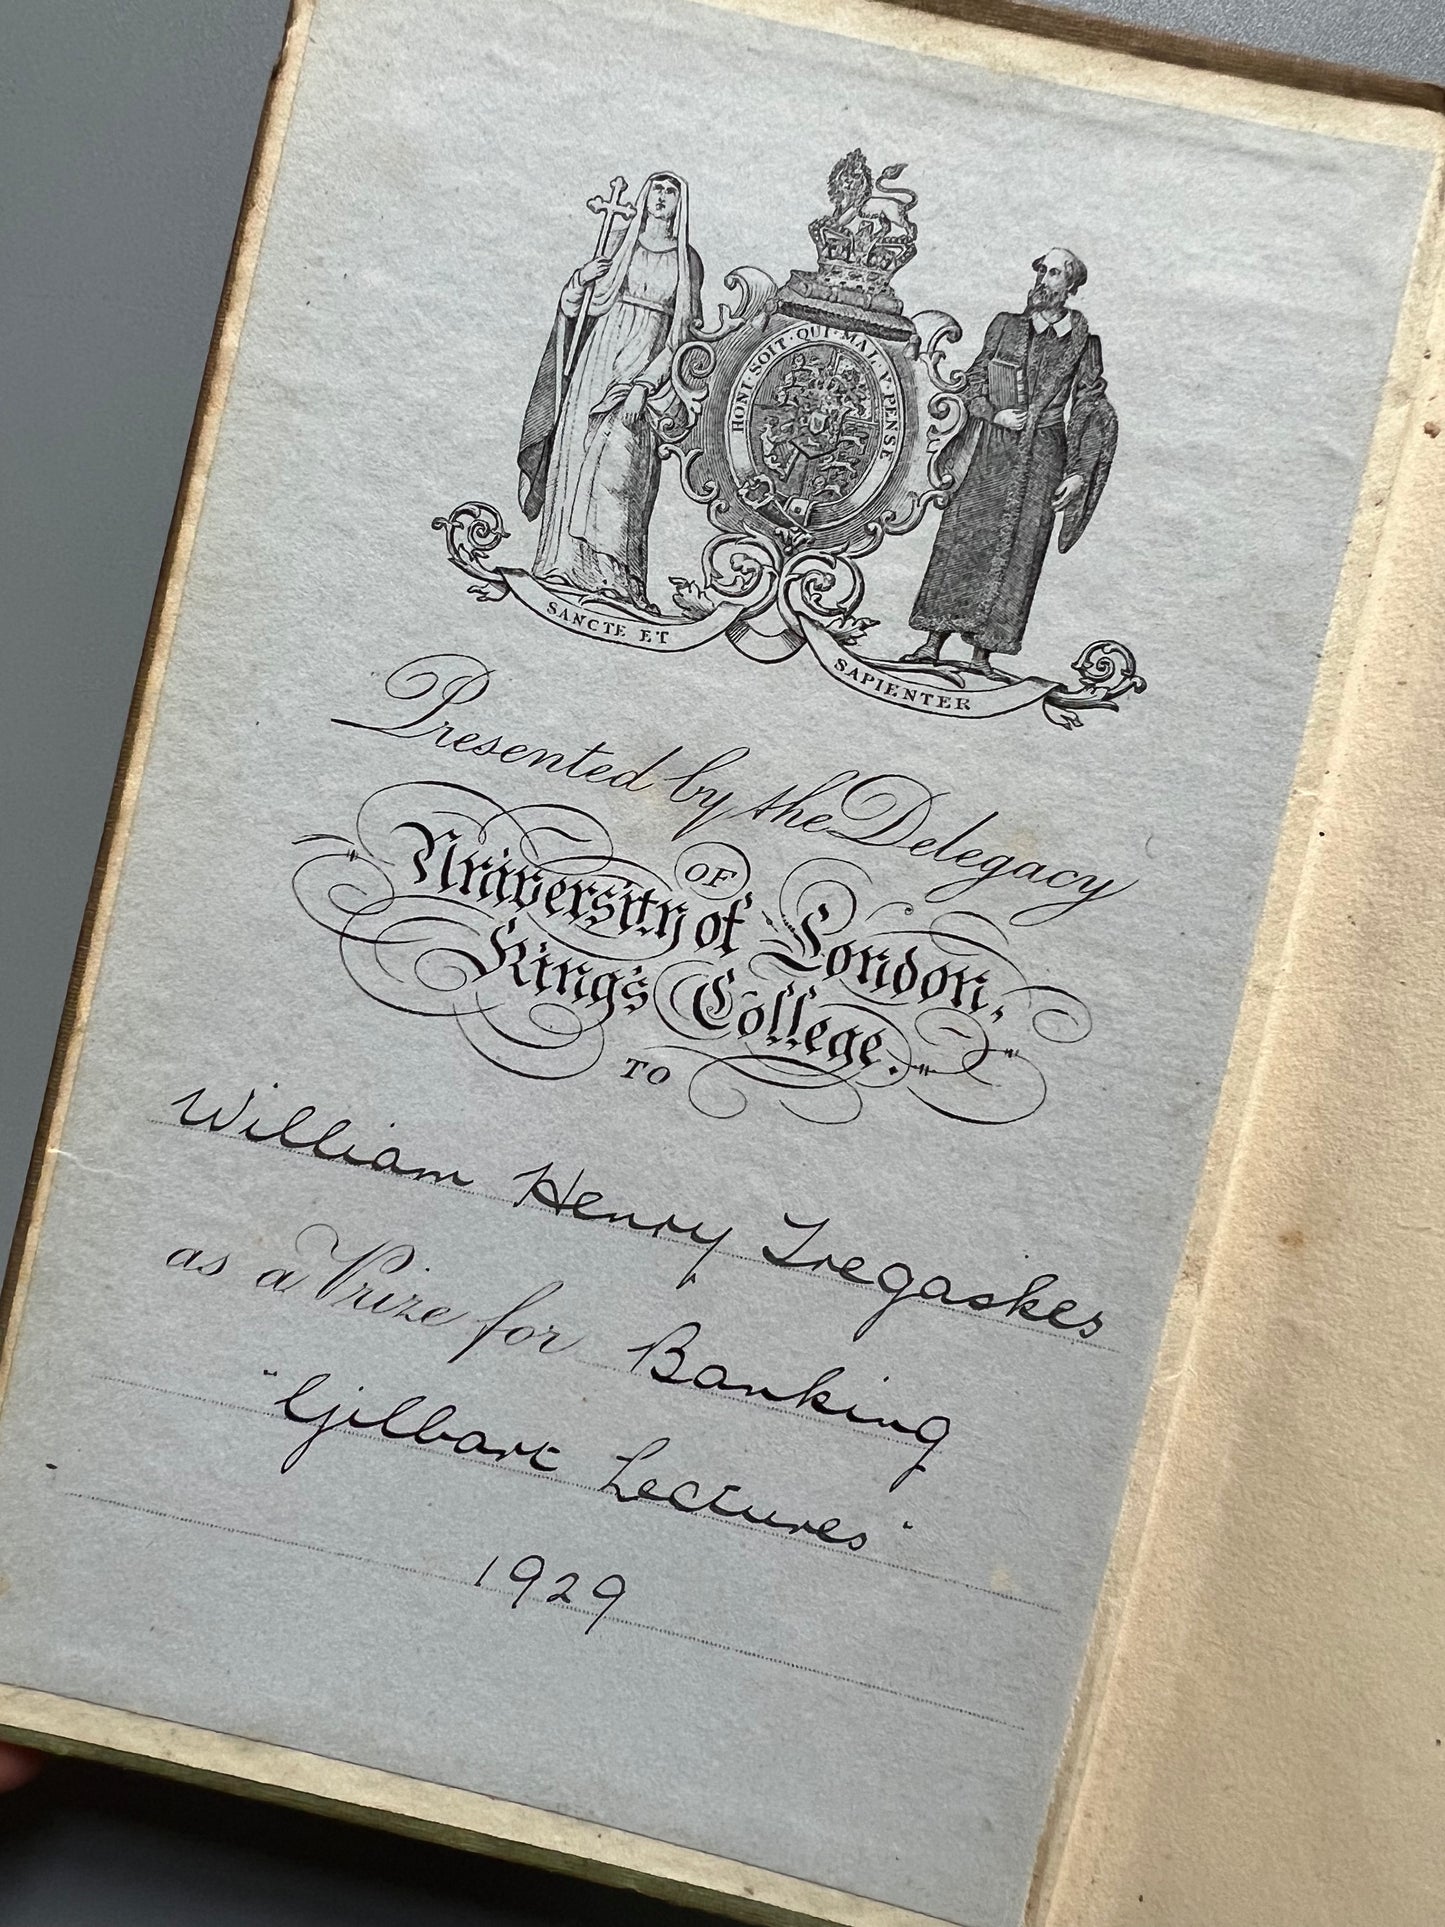 HONI · SOIT · QUI · MAL · Y · PENSE
SANCTE ET SAPIENTER
Presented by the Delegacy
OF
University of London,
King's College.
TO
William Henry Tregaskes
as a Prize for Banking
"Gilbart Lectures"
1929